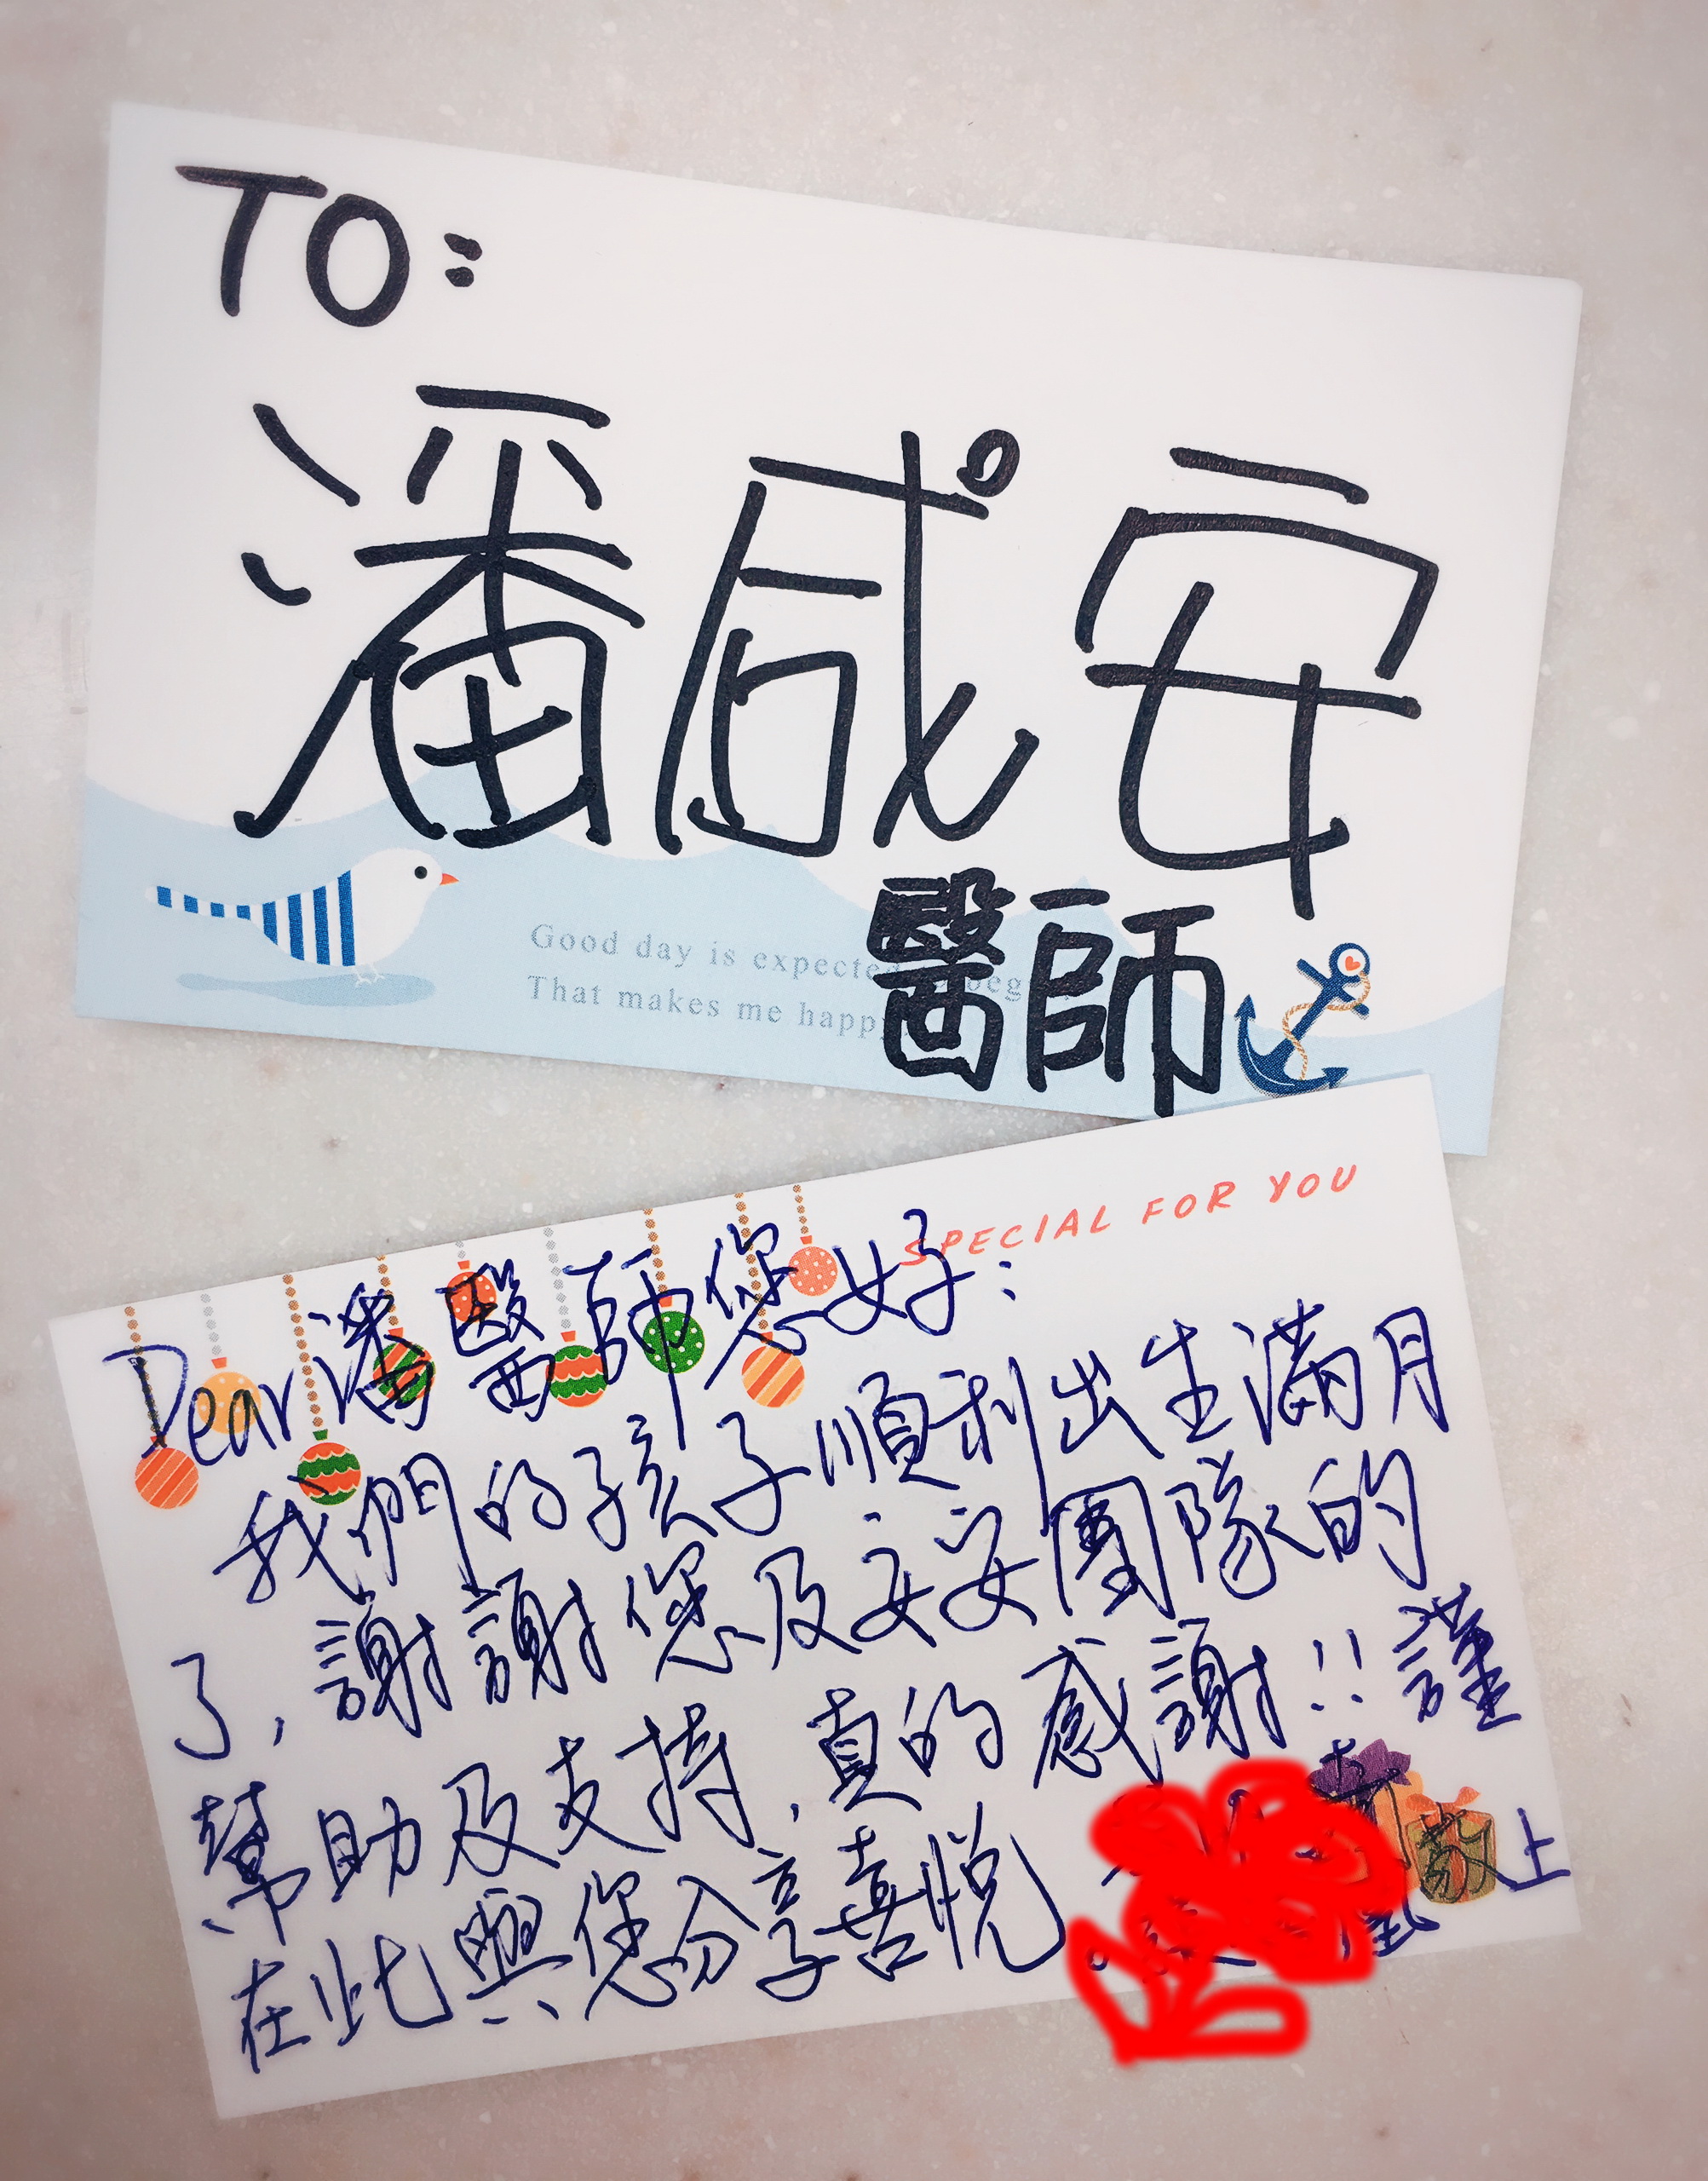 TO:
潘咸安
醫師
Good day is expected
That makes me happ
SPECIAL FOR YOU
Dear 潘醫師您好:
我們的孩子順利出生滿月
了,謝謝您及安安團隊的
幫助及支持,真的感謝!!謹
在此與您分享喜悅
敬上